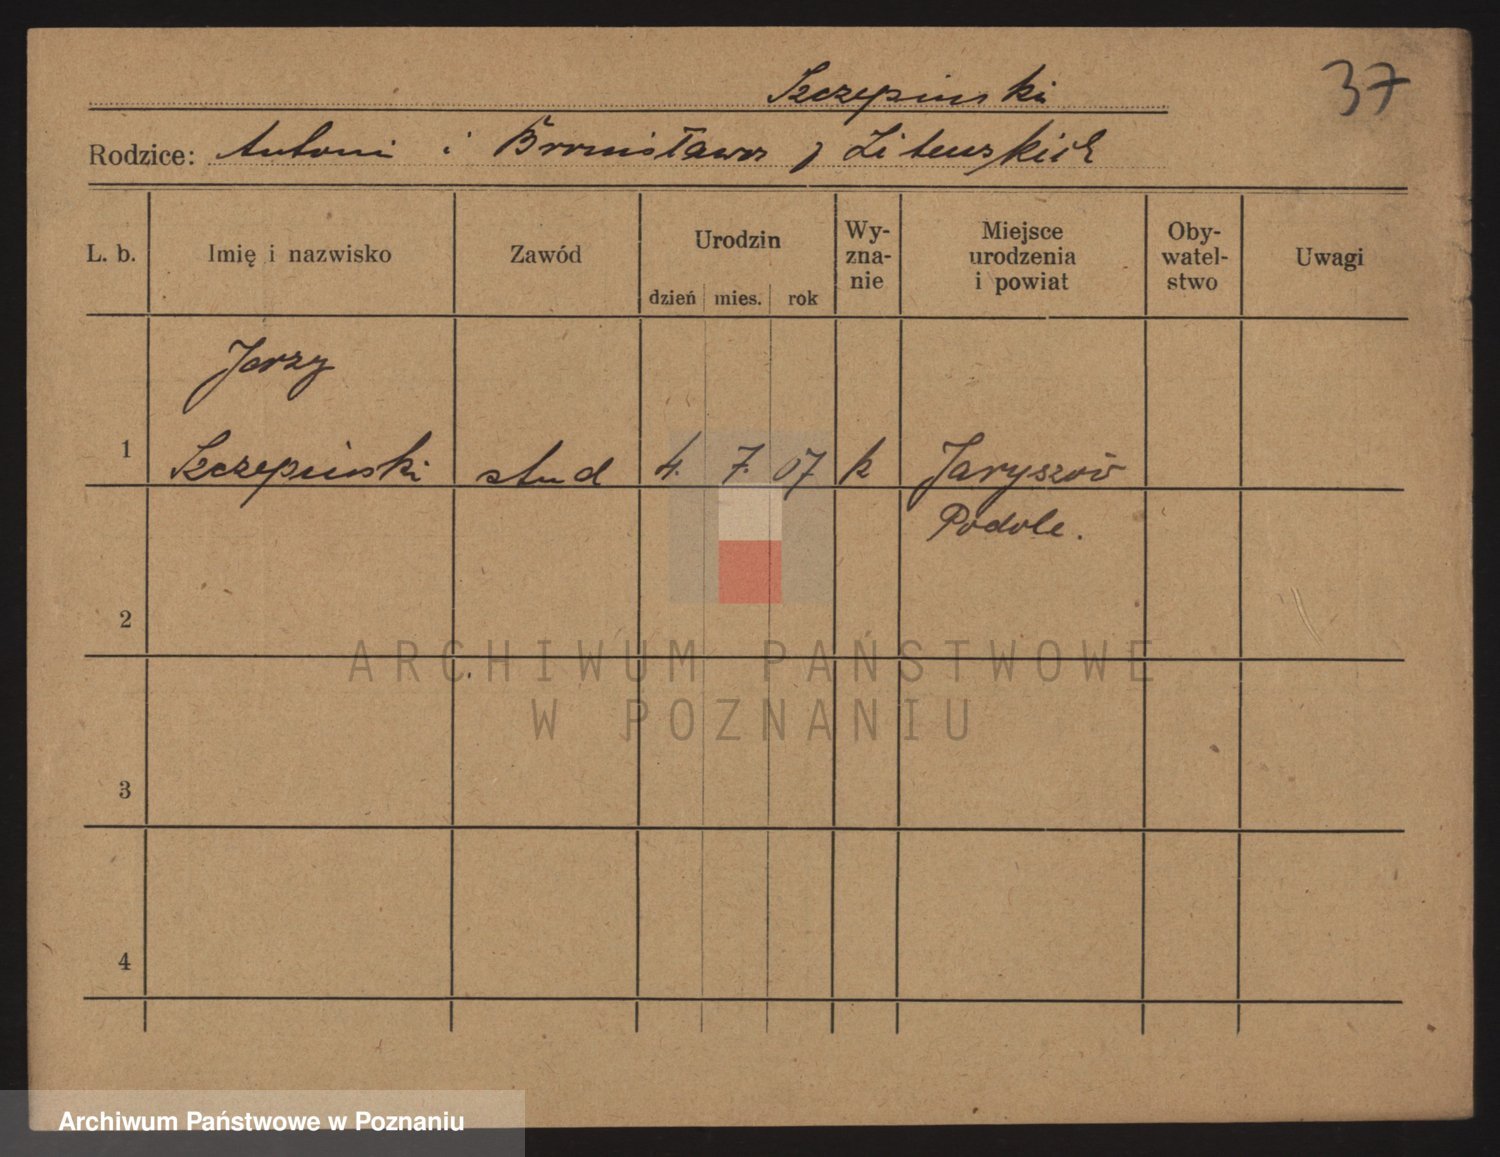 Szczepinski 37
Rodzice: Antoni i Bronisława z Litewskich
L. b. Imię i nazwisko Zawód Urodzin dzień mies. rok Wy-zna-nie Miejsce urodzenia i powiat Oby-watel-stwo Uwagi
Jerzy
1 Szczepinski stud 4. 7. 07 k Jaryszów
Podole.
2
ARCHIWUM PAŃSTWOWE
W POZNANIU
3
4
Archiwum Państwowe w Poznaniu